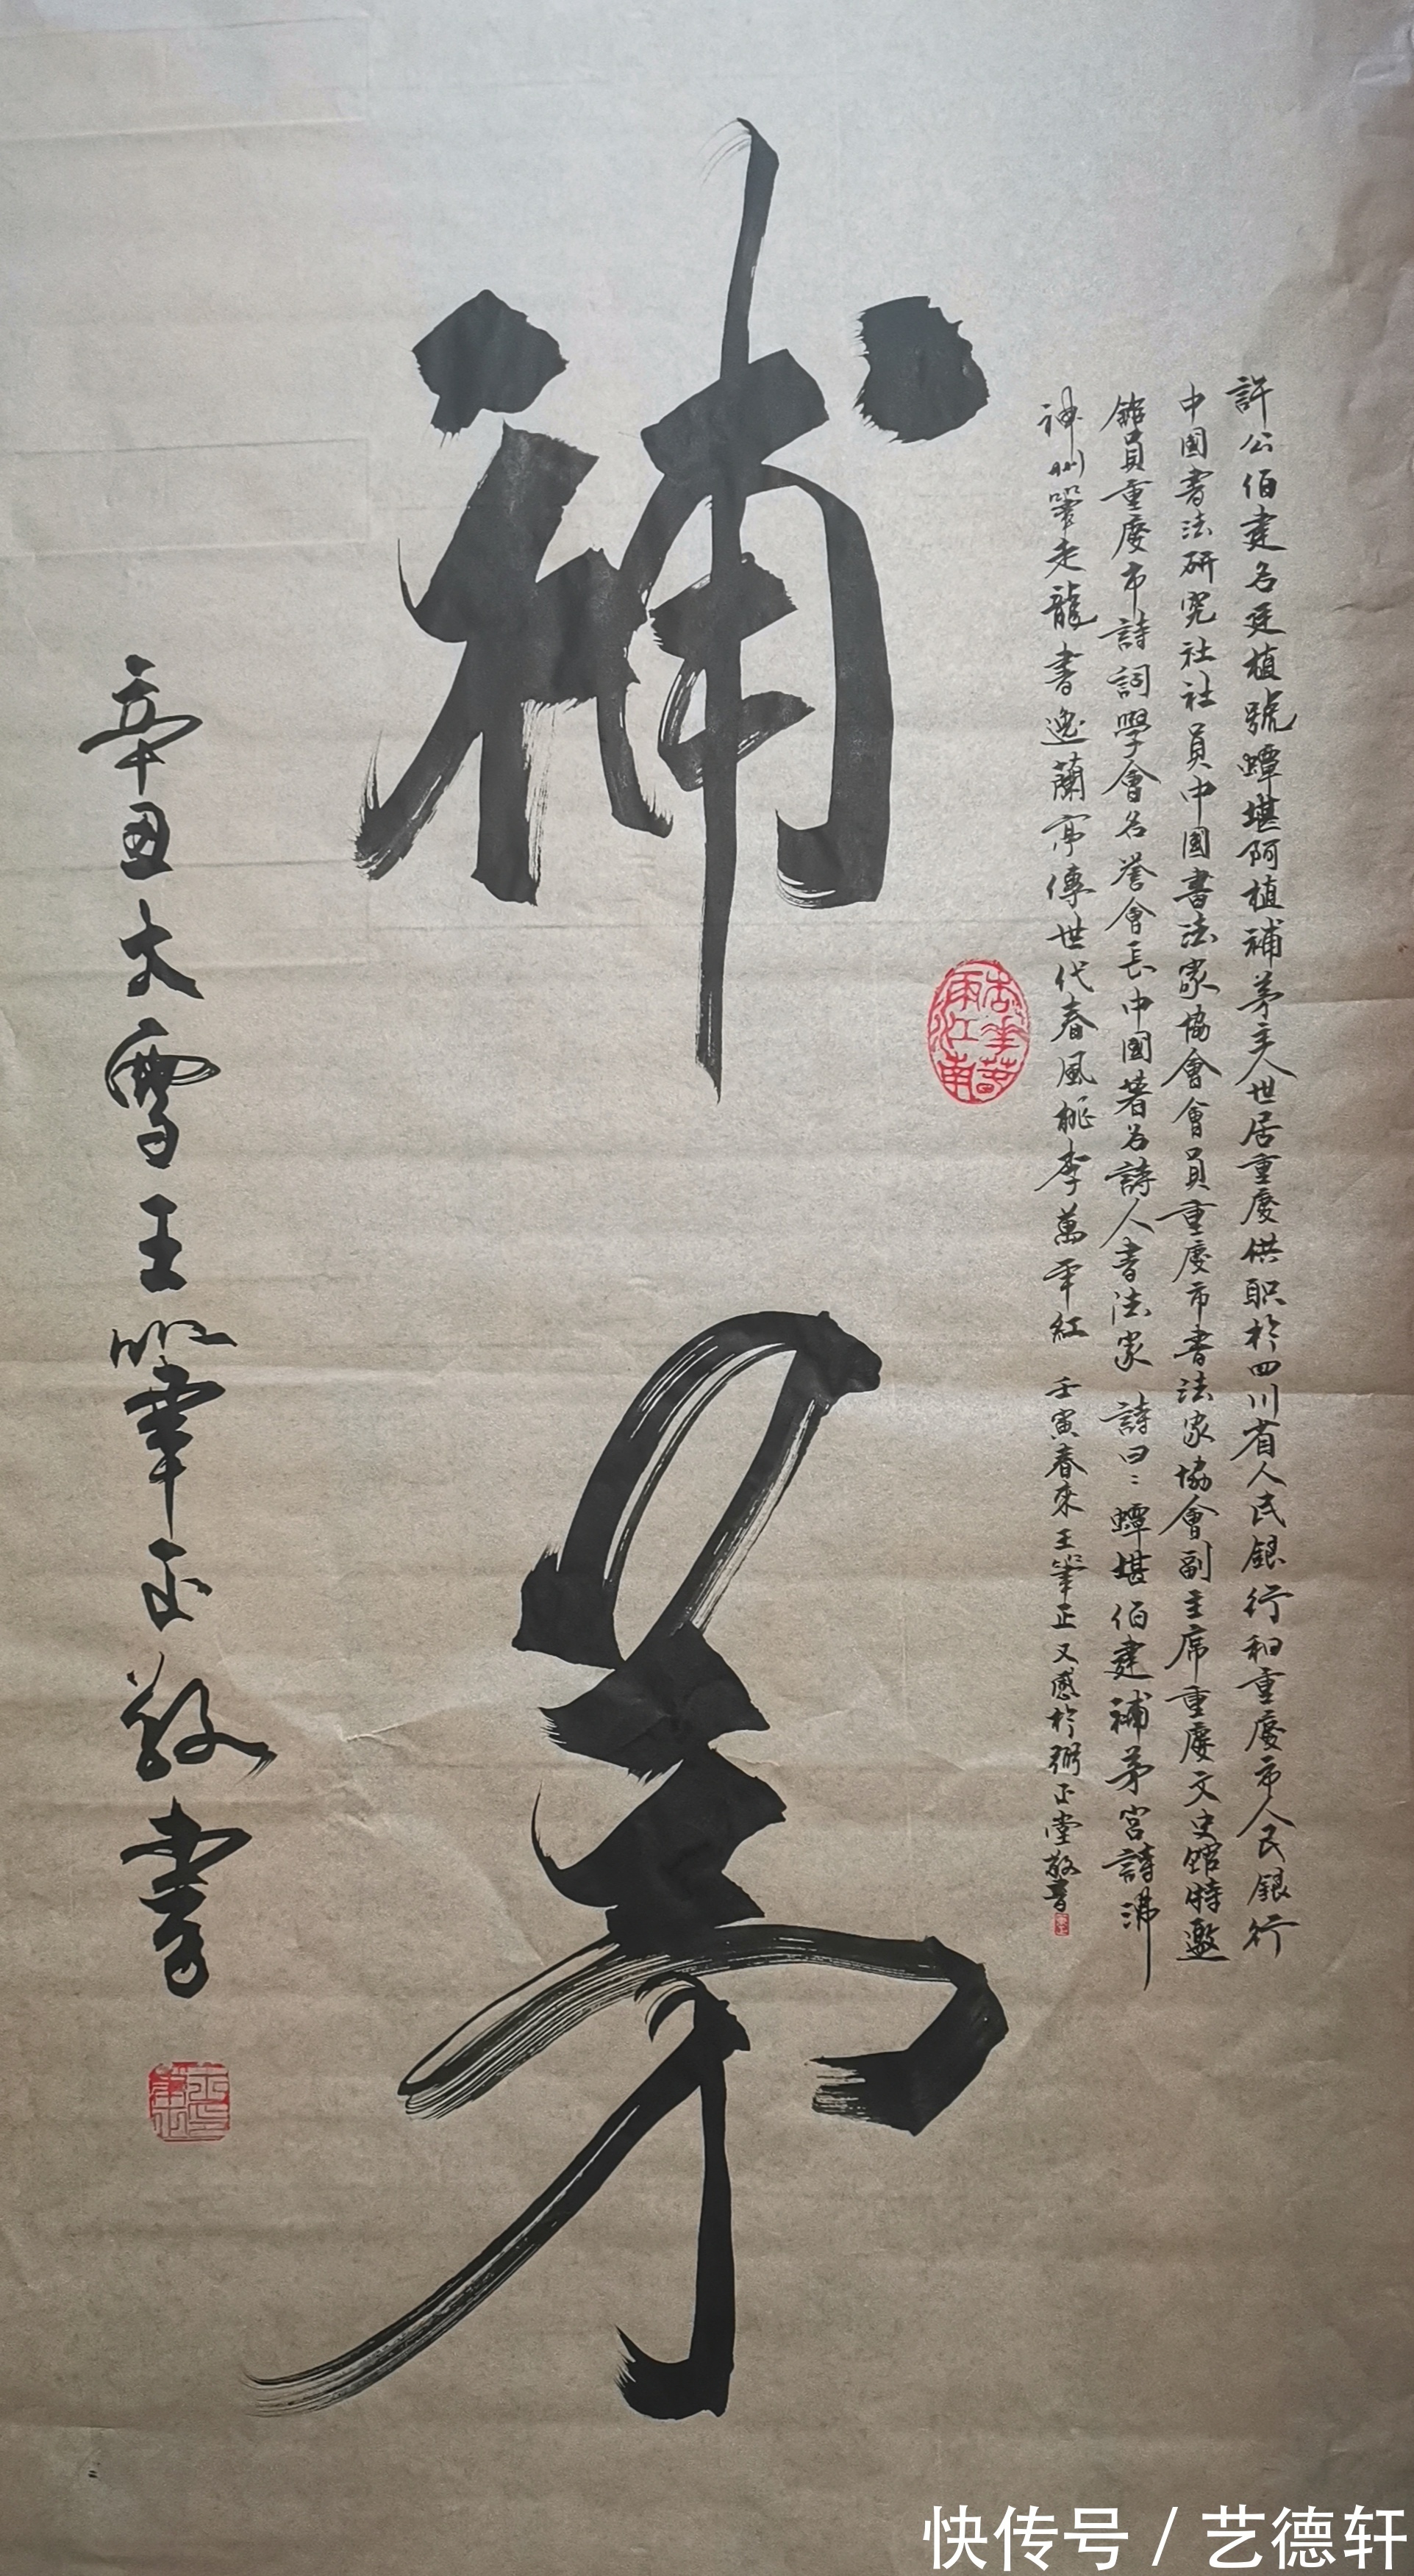 補茅
許公伯建名廷植號蟫堪阿植補茅主人世居重慶供职於四川省人民銀行和重慶市人民銀行
中國書法研究社社員中國書法家協會會員重慶市書法家協會副主席重慶文史館特邀
館員重慶市詩詞學會名譽會長中國著名詩人書法家 詩曰：蟫堪伯建補茅宮詩沸
神州筆走龍書逸蘭亭傳世代春風桃李萬年紅 壬寅春來王筆正又感於弼正堂敬書
辛丑大雪王筆正敬書
快传号 / 艺德轩